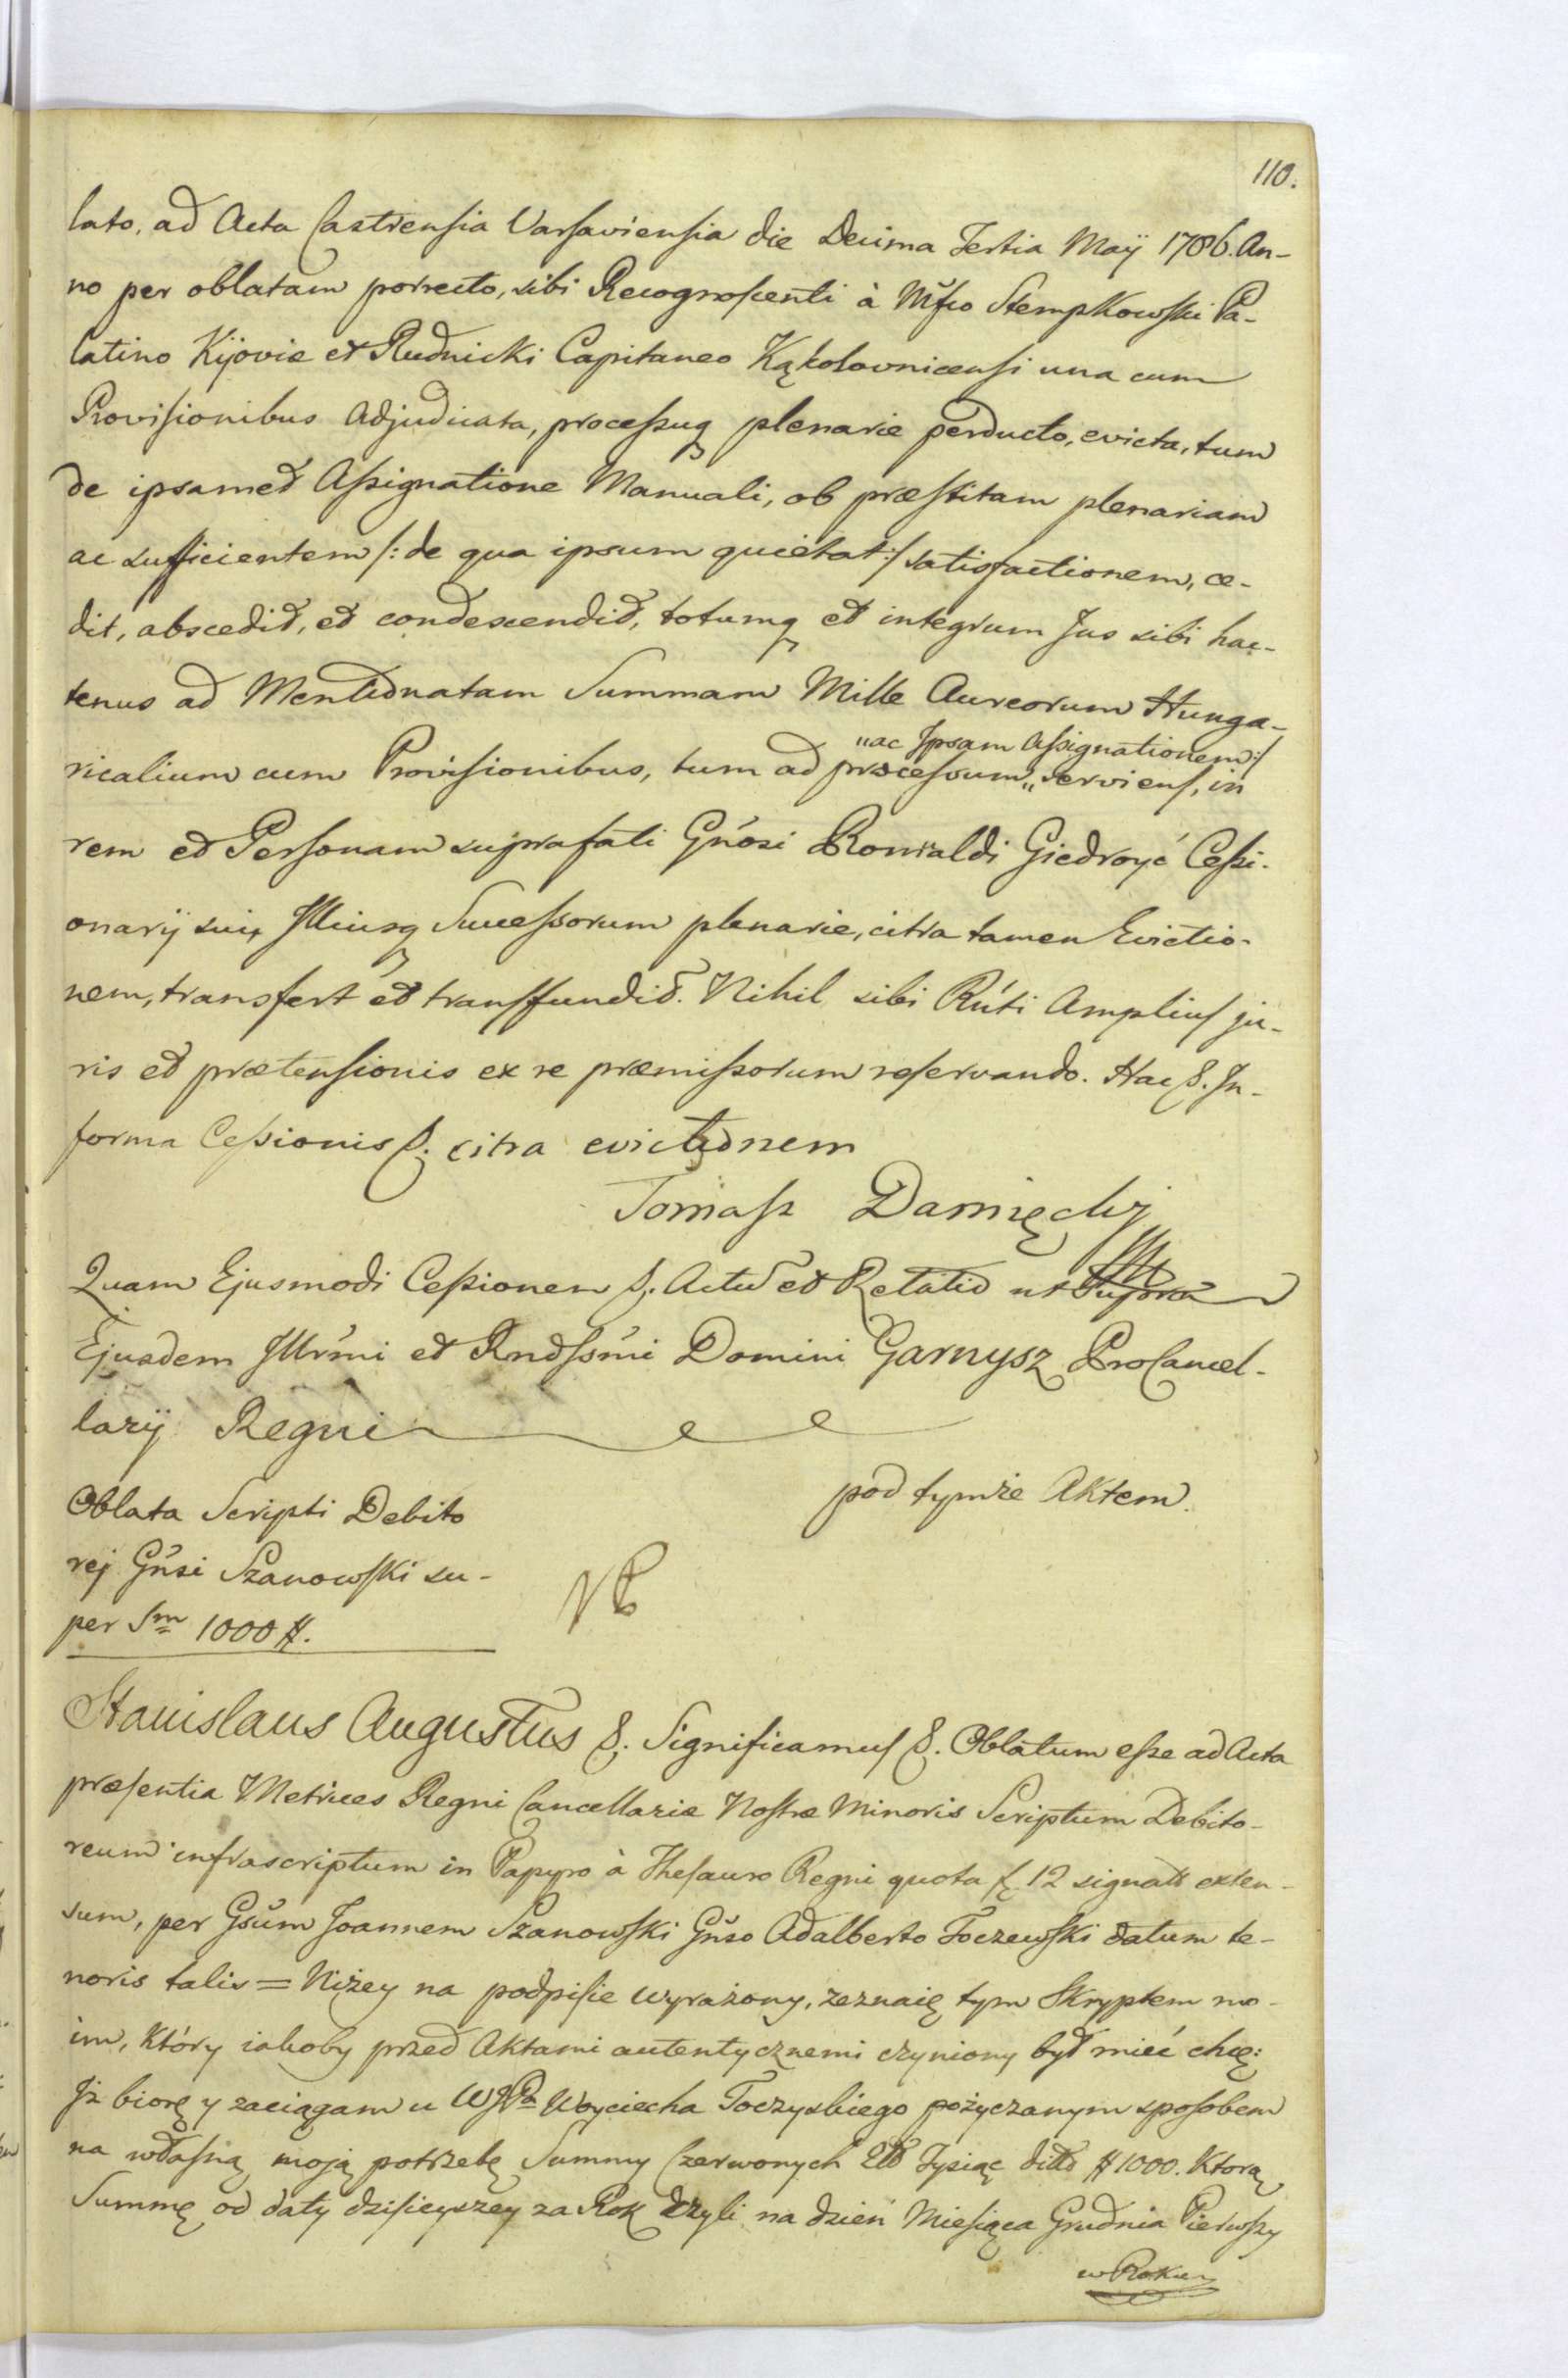 110.
lato, ad Acta Castrensia Varsaviensia die Decima Tertia Maÿ 1786. An-
no per oblatam porrecto, sibi Recognoscenti à Mf̃co Stempkowski Pa-
latino Kijoviæ et Rudnicki Capitaneo Kąkolovnicensi una cum
Provisionibus Adjudicata, processuq̃ plenarie perducto, evicta, tum
de ipsamet Assignatione Manuali, ob præstitam plenariam
ac sufficientem /: de qua ipsum quietat :/ satisfactionem, ce-
dit, abscedit, et condescendit, totumq̃ et integrum Jus sibi hac-
tenus ad Mentionatam Summam Mille Aureorum Hunga-
"ac Ipsam Assignationem :/
ricalium cum Provisionibus, tum ad processum " serviens, in
rem et Personam suprafati Gnosi Romualdi Giedroyć Cessi-
onarij suiq̃ Illiusq̃ Successorum plenarie, citra tamen Evictio-
nem, transfert et transfundit. Nihil sibi Rńti Amplius ju-
ris et prætensionis ex re præmissorum reservando. Hac &. In-
forma Cessionis &. citra evictionem
Tomasz Damięcki
Quam Ejusmodi Cessionem &. Actu et Relatio ut Supra
Ejusdem Illrmi et Rndssmi Domini Garnysz ProCancel-
larÿ Regni
Oblata Scripti Debito
rej Gńsi Szanowski su-
per Sm̱ 1000 #.
pod tymże Aktem.
NB
Stanislaus Augustus &. Significamus &. Oblatum esse ad Acta
præsentia Metrices Regni Cancellariæ Nostræ Minoris Scriptum Debito-
reum infrascriptum in Papyro à Thesauro Regni quota f. 12 signato exten-
sum, per Gsum Joannem Szanowski Gńso Adalberto Toczewski datum te-
noris talis = Niżey na podpisie wyrażony, zeznaię tym Skryptem mo-
im, Który iakoby przed Aktami autentycznemi czyniony był mieć chcę:
Jż biorę y zaciągam u WJPa Woyciecha Toczyskiego pożyczanym sposobem
na własną moją potrzebę Summy Czerwonych Złł Tysiąc ditto # 1000. Ktorą
Summę od daty dzisieyszey za Rok czyli na dzień Miesiąca Grudnia Pierwszy
w Roku